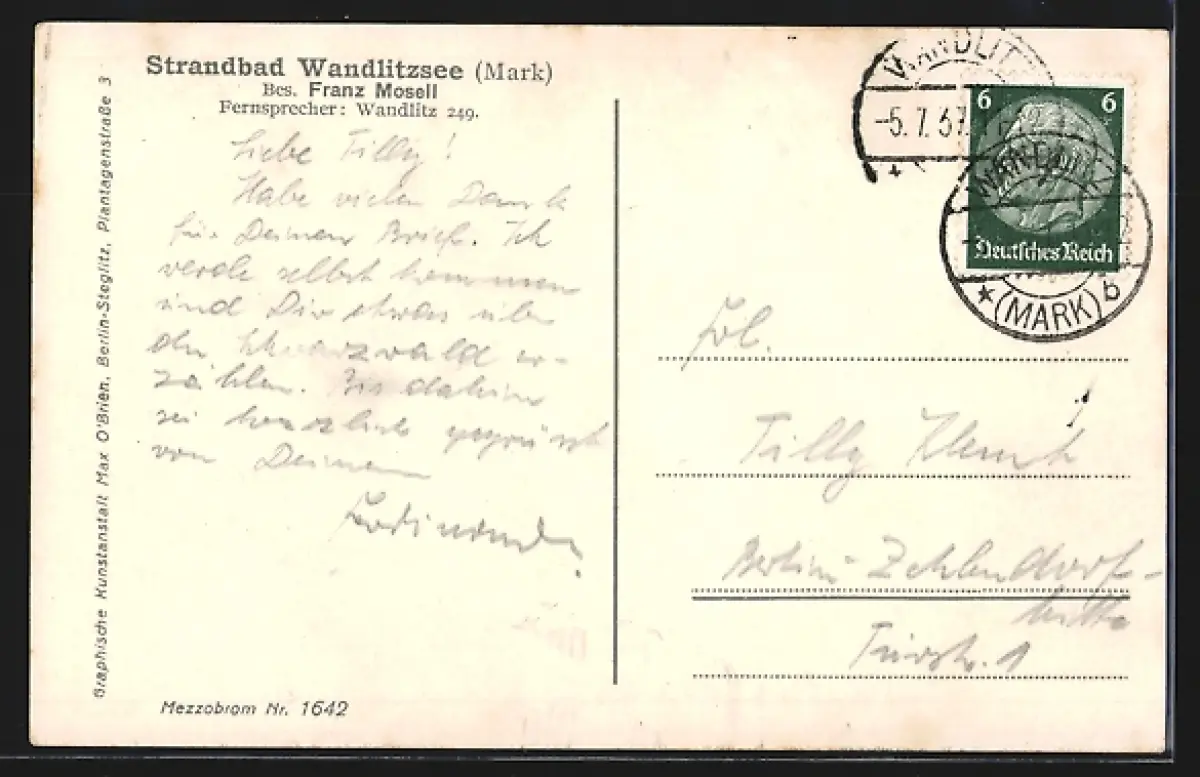 Strandbad Wandlitzsee (Mark)
Bes. Franz Mosell
Fernsprecher: Wandlitz 249.
Liebe Tilly!
Habe vielen Dank
für Deinen Brief. Ich
werde selbst kommen
und Dir etwas über
den Schwarzwald er-
zählen. Bis dahin
sei herzlich gegrüsst
von Deinem
Ferdinand
Graphische Kunstanstalt Max O'Brien, Berlin-Steglitz, Plantagenstraße 3
Mezzobrom Nr. 1642
WANDLITZ
-5.7.37
6 6
Deutsches Reich
WANDLITZ
(MARK) b
Frl.
Tilly
Berlin-Zehlendorf-
Mitte